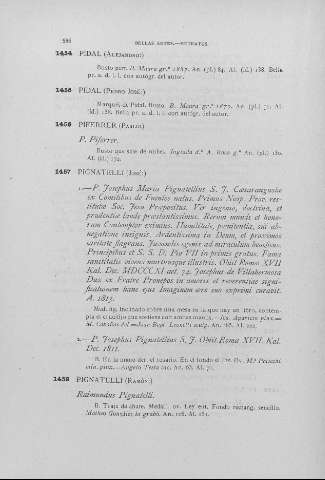 596
BELLAS ARTES.—RETRATOS.
1454 PIDAL (ALEJANDRO)
Busto perf. B. Maura gr.º 1887. An. (pl.) 84. Al. (id.) 138. Bella
pr. a. d. l. l. con autógr. del autor.
1455 PIDAL (PEDRO JOSÉ)
Marqués d. Pidal. Busto. B. Maura gr.º 1870. An. (pl.) Al.
(id.) 138. Bella pr. a. d. l. l. con autógr. del autor.
1456 PIFERRER (PABLO)
P. Piferrer.
Busto que sale de nubes. d.º A. Roca g.º An. (pl.) 180.
Al. (id.)
1457 PIGNATELLI (JOSÉ)
1.—P. Josephus Maria Pignatellius S. J. Caesaraugustae
ex Comitibus de Fuentes natus. Primus Neap. Prov. res-
titutae Soc. Jesu Praepositus. Vir ingenio, doctrina, et
prudentiae laude praestantissimus. Rerum omnis et hono-
rum Contemptor eximius. Humilitate, poenitentia, sui ab-
negatione insignis. Ardentissima in Deum, et proximos
caritate flagrans. Juvandis egenis ad miraculum beneficus.
Principibus et S. S. D. Pio VII in primis gratus. Fama
sanctitatis moriens utrorumque illustris. Obiit Romae XVII
Kal. Dec. MDCCCXI aet. 74. Josephus de Villahermosa
Dux ex Fratre Pronepos in amoris et reverentiae signi-
ficationem hanc ejus Imaginem aere suo exprimi curavit.
A. 1815.
Med. fig. inclinado sobre una mesa en la que hay un libro, contem-
pla el crucifijo que sostiene con ambas manos.
An. 165. Al. 222.
2.—P. Josephus Pignatellius S. J. Obiit Roma XVII. Kal.
Dec. 1811.
B. En la mano der. el rosario. En el fondo
Angelo Testa inc. An. 65. Al.
1458 PIGNATELLI (RAMÓN)
Raimundus Pignatelli.
B. Traje de abate. Medall. ov. Ley. ext. Fondo rectang. sencillo.
Matheo González lo grabó. An. 118. Al. 161.